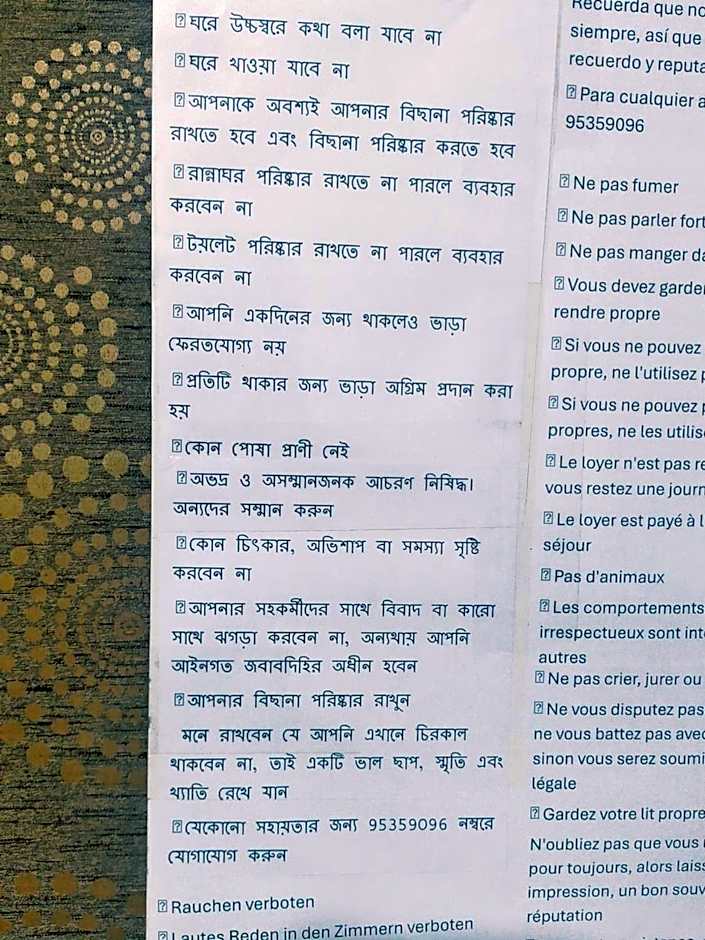 ⍰ ঘরে উচ্চস্বরে কথা বলা যাবে না
⍰ ঘরে খাওয়া যাবে না
⍰ আপনাকে অবশ্যই আপনার বিছানা পরিষ্কার
রাখতে হবে এবং বিছানা পরিষ্কার করতে হবে
⍰ রান্নাঘর পরিষ্কার রাখতে না পারলে ব্যবহার
করবেন না
⍰ টয়লেট পরিষ্কার রাখতে না পারলে ব্যবহার
করবেন না
⍰ আপনি একদিনের জন্য থাকলেও ভাড়া
ফেরতযোগ্য নয়
⍰ প্রতিটি থাকার জন্য ভাড়া অগ্রিম প্রদান করা
হয়
⍰ কোন পোষা প্রাণী নেই
⍰ অভদ্র ও অসম্মানজনক আচরণ নিষিদ্ধ।
অন্যদের সম্মান করুন
⍰ কোন চিৎকার, অভিশাপ বা সমস্যা সৃষ্টি
করবেন না
⍰ আপনার সহকর্মীদের সাথে বিবাদ বা কারো
সাথে ঝগড়া করবেন না, অন্যথায় আপনি
আইনগত জবাবদিহির অধীন হবেন
⍰ আপনার বিছানা পরিষ্কার রাখুন
মনে রাখবেন যে আপনি এখানে চিরকাল
থাকবেন না, তাই একটি ভাল ছাপ, স্মৃতি এবং
খ্যাতি রেখে যান
⍰ যেকোনো সহায়তার জন্য 95359096 নম্বরে
যোগাযোগ করুন
⍰ Rauchen verboten
⍰ Lautes Reden in den Zimmern verboten
Recuerda que no
siempre, así que
recuerdo y reputa
⍰ Para cualquier a
95359096
⍰ Ne pas fumer
⍰ Ne pas parler fort
⍰ Ne pas manger da
⍰ Vous devez garde
rendre propre
⍰ Si vous ne pouvez
propre, ne l'utilisez p
⍰ Si vous ne pouvez p
propres, ne les utilis
⍰ Le loyer n'est pas re
vous restez une journ
⍰ Le loyer est payé à l
séjour
⍰ Pas d'animaux
⍰ Les comportements
irrespectueux sont int
autres
⍰ Ne pas crier, jurer ou
⍰ Ne vous disputez pas
ne vous battez pas avec
sinon vous serez soumi
légale
⍰ Gardez votre lit propre
N'oubliez pas que vous
pour toujours, alors laiss
impression, un bon souv
réputation